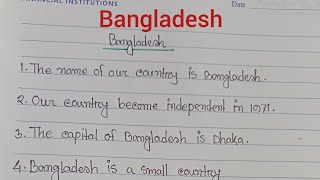 FINANCIAL INSTITUTIONS Date
Bangladesh
Bangladesh
1. The name of our country is Bangladesh.
2. Our country become independent in 1971.
3. The capital of Bangladesh is Dhaka.
4. Bangladesh is a small country